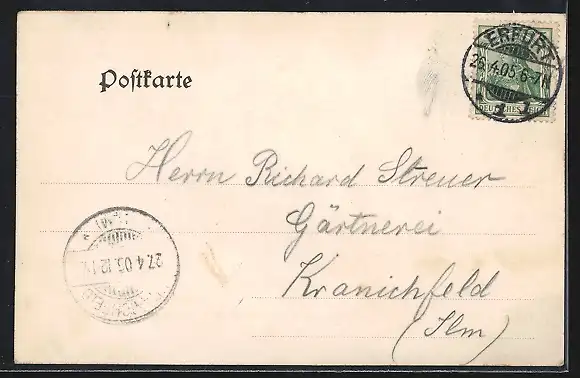 Postkarte
ERFURT
26.4.05.6-7N
1
DEUTSCHES REICH
Herrn Richard Streuer
Gärtnerei
Kranichfeld
(Ilm)
27.4.05.